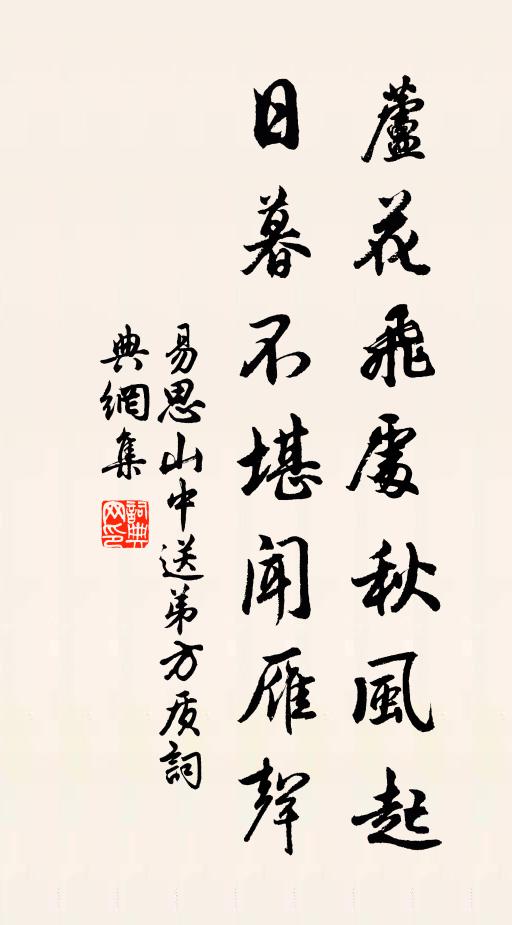 蘆花飛處秋風起
日暮不堪聞雁聲
易思山中送弟方质詞
典網集
詞典网印